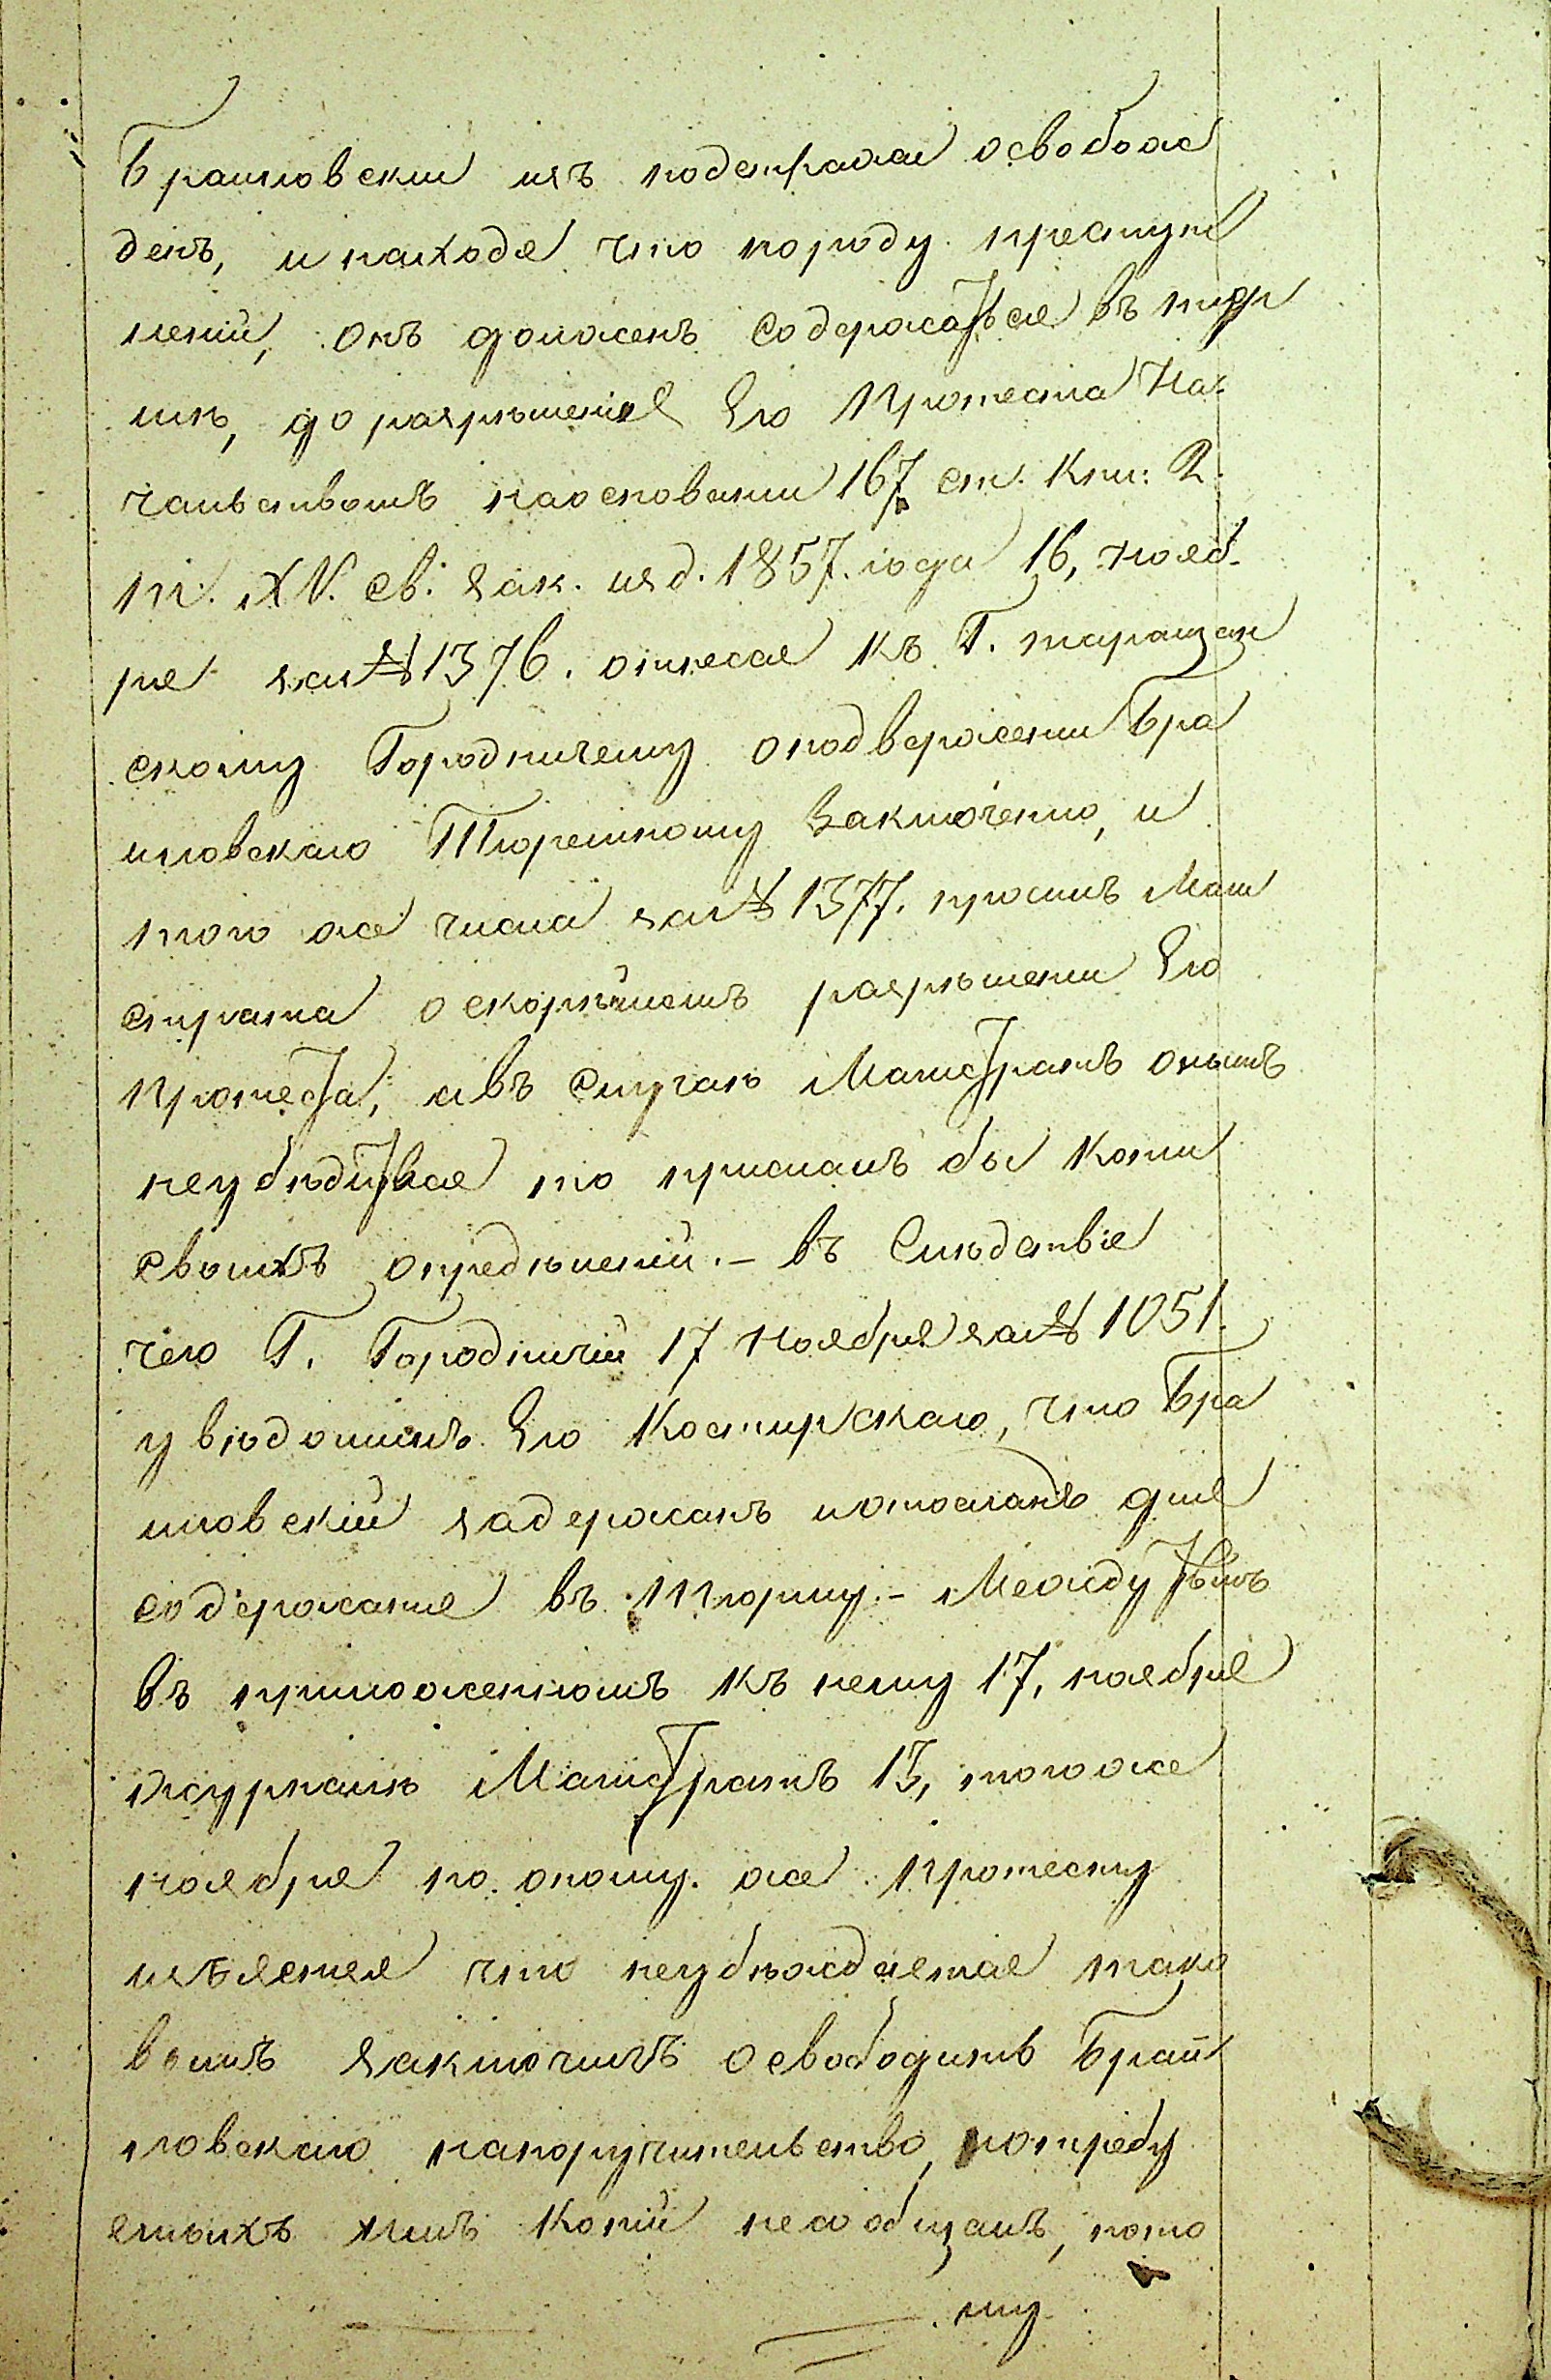 Браиловскій изъ подстражи освобож
денъ, и находя что породу преступ
леній, онъ долженъ содержаться въ тюр
мѣ, до разрѣшенія Его Протеста На
чальствомъ наосновании 167 ст. Кни: 2
т. XV. Св. Зак. изд. 1857. года 16, нояб
ря за № 1376. отнесся къ Г. таращан
скому Городничему оподвержении Бра
иловскаго Тюремному Заключению, и
того же числа за № 1377. просилъ Маги
страта оскорѣйшемъ разрѣшении Его
Протеста, авъ случаѣ Магистратъ онымъ
неубѣдился то прислалъ бы Копии
своихъ опредѣленій. - въ Слѣдствіе
чего Г. Городничій 17 Ноября за № 1051.
увѣдомилъ Его Костирскаго, что Бра
иловскій задержанъ иотосланъ для
содержания въ Тюрму. - Между тѣмъ
въ приложенномъ къ нему 17, ноября
журналѣ Магистратъ 13, тогоже
ноября по оному же Протесту
изъяснея что неубѣждается тако
вымъ заключилъ освободить Браи
ловскаго напоручительство, потребу
емыхъ имъ Копій несообщать, пото
му